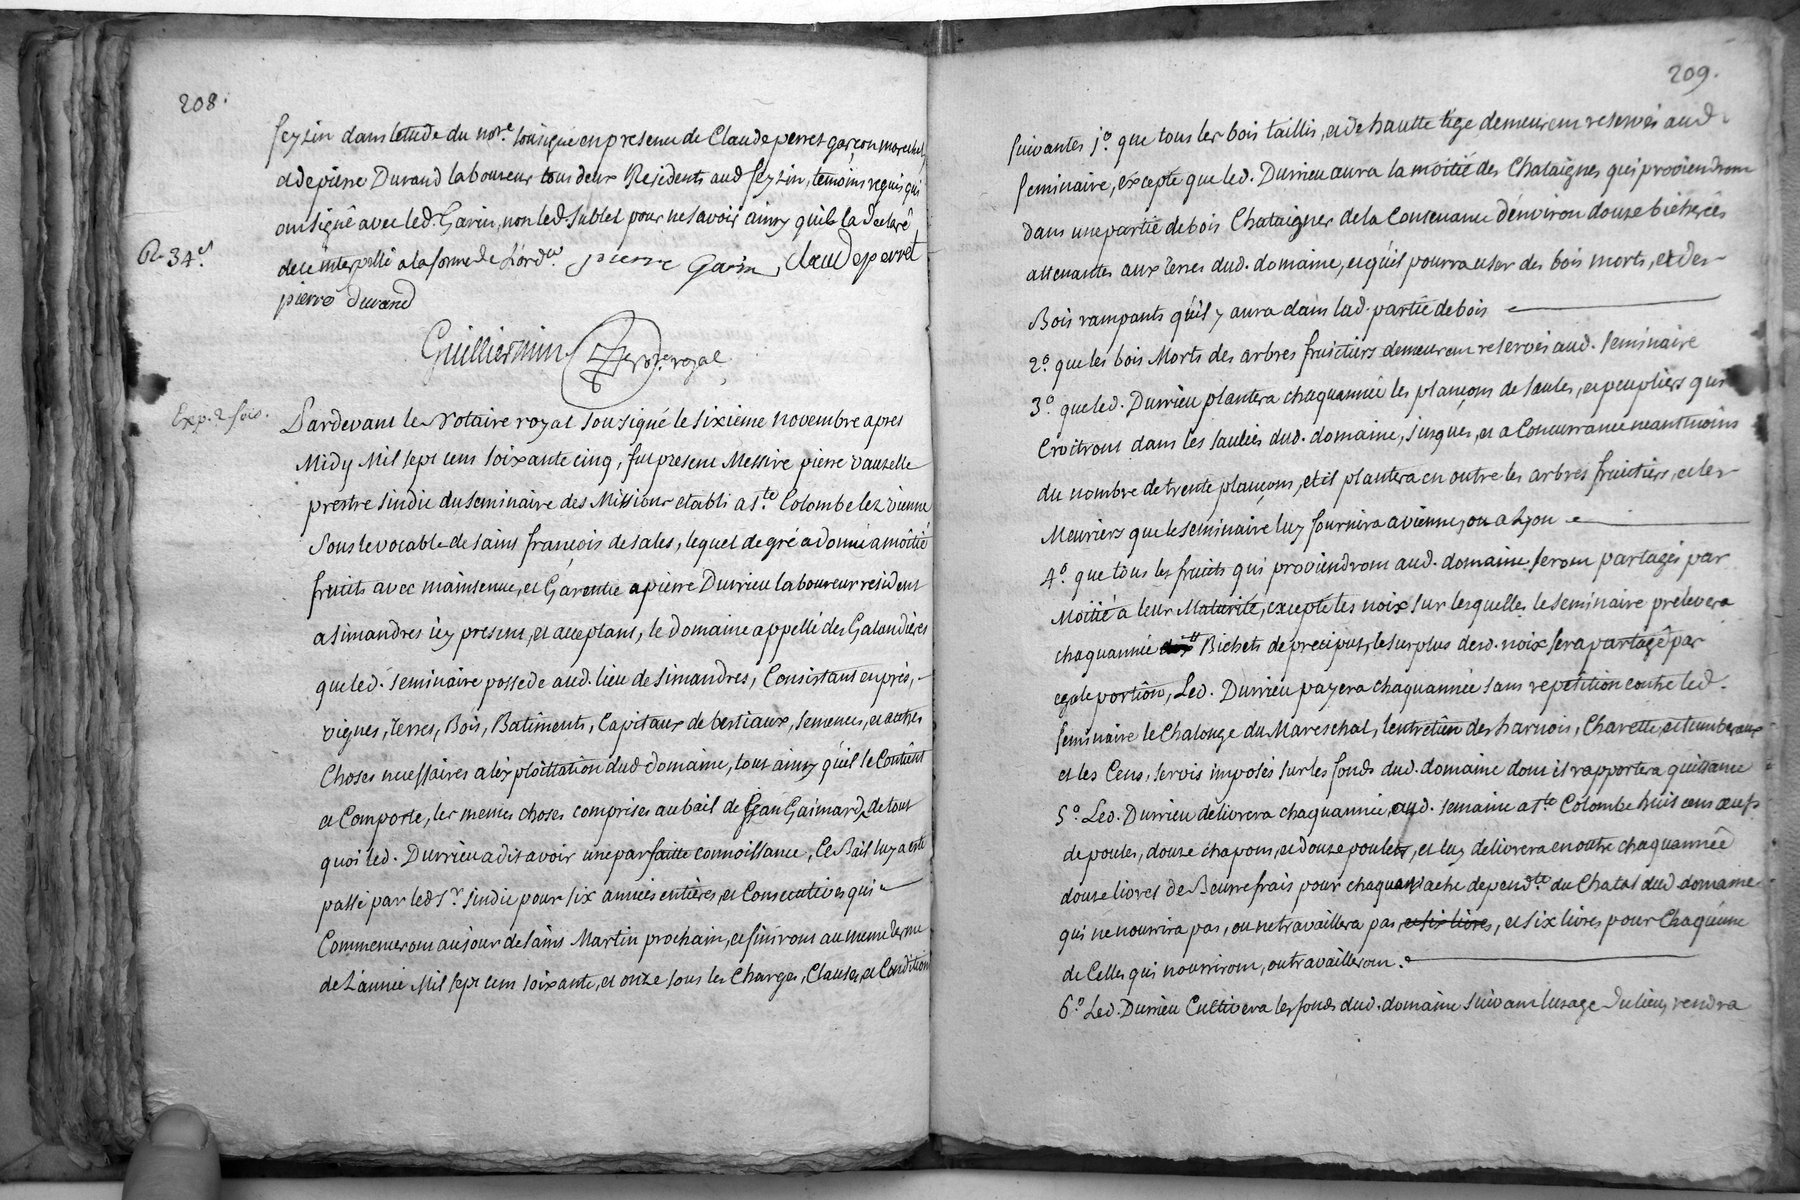 208.
feyzin dans letude du nore. sousigné en presence de Claude perret garçon marechal,
et de pierre Durand laboureur tous deux Residents aud feyzin, temoins requis qui
ont signé avec led. Garin, non led Sublet pour ne savoir ainsy quil la declaré
de ce interpellé a la forme de L'ordce pierre Garin, claude perret
R. 34s.
pierre durand
Guilliermin nore. royal
Exp. 2 fois.
Pardevant le Notaire royal sousigné le sixieme novembre apres
Midy Mil sept cent soixante cinq, fut present Messire pierre vauzelle
prestre sindic du seminaire des Missions etabli a Ste Colombe lez vienne
sous le vocable de saint francois de sales, lequel de gré a donné a moitié
fruits avec maintenue, et Garentie a pierre Durrieu laboureur resident
a simandres icy present, et acceptant, le domaine appellé des Galandieres
que led. seminaire possede aud. lieu de simandres, Consistant en prés,
vignes, terres, Bois, Batiments, Capitaux de bestiaux, semences, et autres
Choses necessaires a l'exploittation dud domaine, tout ainsy qu'il se Contient
et Comporte, les memes choses comprises au bail de Jean Gaimard, de tout
quoi led. Durrieu a dit avoir une parfaitte connoissance, Ce Bail luy a eté
passé par led sr. sindic pour six années entieres, et Consecutives qui
Commenceront au jour de saint Martin prochain, et finiront au meme terme
de L'année Mil sept cent soixante, et onze sous les Charges, Clauses, et Conditions
209.
suivantes 1o. que tous les bois taillis, et de hautte tige demeureront reservés aud
seminaire, excepté que led. Durrieu aura la moitié des Chataignes qui proviendront
dans une partie de bois Chataigner de la Contenance d'environ douze bicherées
attenantes aux terres dud. domaine, et qu'il pourra user des bois morts, et des
Bois rampants qu'il y aura dans lad. partie de bois
2o. que les bois Morts des arbres fruictiers demeureront reservés aud. seminaire
3o. que led. Durrieu plantera chaquannée les plançons de saules, et peupliers qui
Croitront dans les saulées dud. domaine, jusques, et a Concurrance neantmoins
du nombre de trente plançons, et il plantera en outre les arbres fruictiers, et les
Meuriers que le seminaire luy fournira a vienne, ou a Lyon
4o. que tous les fruits qui proviendront aud. domaine seront partagés par
Moitié a leur Maturité, excepté les noix sur lesquelles le seminaire prelevera
chaquannée Bichets de preciput, le surplus desd. noix sera partagé par
egale portion, Led. Durrieu payera chaquannée sans repetition contre led.
seminaire le Chalonge du Mareschal, l'entretien des harnois, Charette, et tumbereaux
et les Cens, servis imposés sur les fonds dud. domaine dont il rapportera quittance
5o. Led. Durrieu delivrera chaquannée, aud. semaine a Ste Colombe huit cens œufs
de poules, douze chapons, et douze poulets, et luy delivrera en outre chaquannée
douze livres de Beurre frais pour chaque vache dependte. du Chatal dud domaine
qui ne nourrira pas, ou ne travaillera pas, et six livres, et six livres pour Chaqu'une
de Celles qui nourriront, ou travailleront.
6o. Led. Durrieu Cultivera les fonds dud. domaine suivant lusage du lieu, rendra